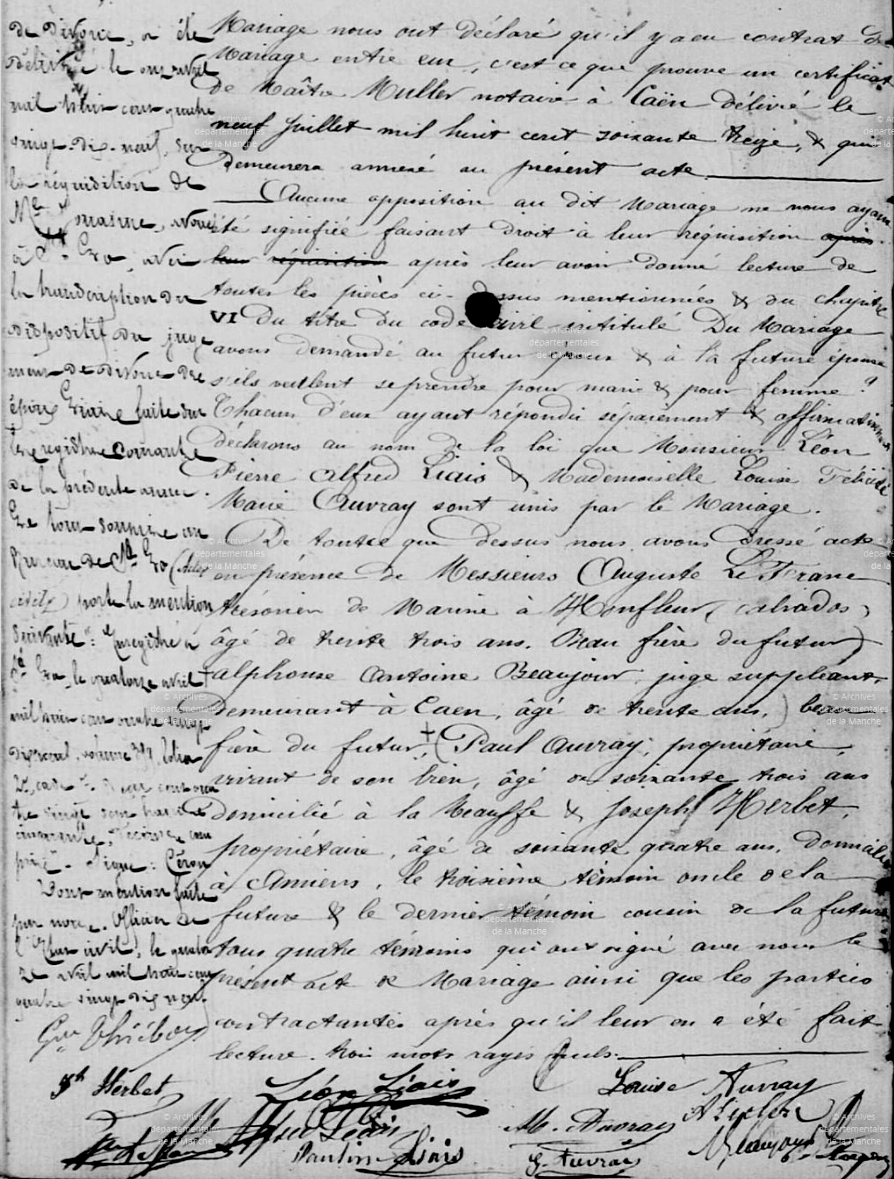 Mariage nous ont déclaré qu'il y a eu contrat de
Mariage entre eux, c'est ce que prouve un certificat
de Maître Muller notaire à Caën délivré le
neuf Juillet mil huit cent soixante treize, & qui
Demeurera annexé au présent acte.
Aucune opposition au dit Mariage ne nous ayant
été signifiée faisant droit à leur réquisition après
leur réquisition après leur avoir donné lecture de
toutes les pièces ci-dessus mentionnées & du chapitre
VI du titre du code civil intitulé Du Mariage
avons demandé au futur époux & à la future épouse
s'ils veulent se prendre pour mari & pour femme ?
Chacun d'eux ayant répondu séparément & affirmativement
déclarons au nom de la loi que Monsieur Léon
Pierre Alfred Liais & Mademoiselle Louise Félicité
Marie Auvray sont unis par le Mariage.
De tout ce que dessus nous avons dressé acte
en présence de Messieurs Auguste Le Franc
trésorier de Marine à Honfleur, Calvados,
âgé de trente trois ans. Beau frère du futur)
alphonse Antoine Beaujour, juge suppléant,
Demeurant à Caen, âgé de trente ans,) beau
frère du futur, + (Paul Auvray, propriétaire
vivant de son bien, âgé de soixante trois ans
domicilié à la Meauffe & Joseph Herbet,
propriétaire, âgé de soixante quatre ans, domicilié
à Amiens, le troisième témoin oncle de la
future & le dernier témoin cousin de la future
tous quatre témoins qui ont signé avec nous le
présent acte de Mariage ainsi que les parties
contractantes après qu'il leur en a été fait
lecture. trois mots rayés nuls.
de divorce, a été
délivré le onze avril
mil huit cent quatre
vingt-dix-neuf, sur
la réquisition de
Me
à St Lo, avec
la transcription du
dispositif du juge
ment de divorce des
époux Liais faite sur
le registre courant
de la présente année.
Le tout soumis au
Bureau de St Lo (Actes
civils) porte la mention
suivante: "Enregistré à
St Lo, le quatorze avril
mil huit cent quatre vingt
dix neuf, volume 391, folio
Signé: Céron
Dont mention faite
par nous, Officier de
l'Etat civil, le quatorze
avril mil huit cent
quatre vingt dix neuf
Jh Herbet
Léon Liais
Louise Auvray
M. Auvray
Pauline Liais
G. Auvray
Beaujour
Archives
départementales
de la Manche